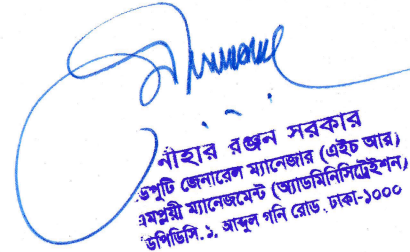 নীহার রঞ্জন সরকার
ডেপুটি জেনারেল ম্যানেজার (এইচ আর)
এমপ্লয়ী ম্যানেজমেন্ট (অ্যাডমিনিসিট্রেইশন)
ডিপিডিসি, ১, আব্দুল গনি রোড, ঢাকা-১০০০